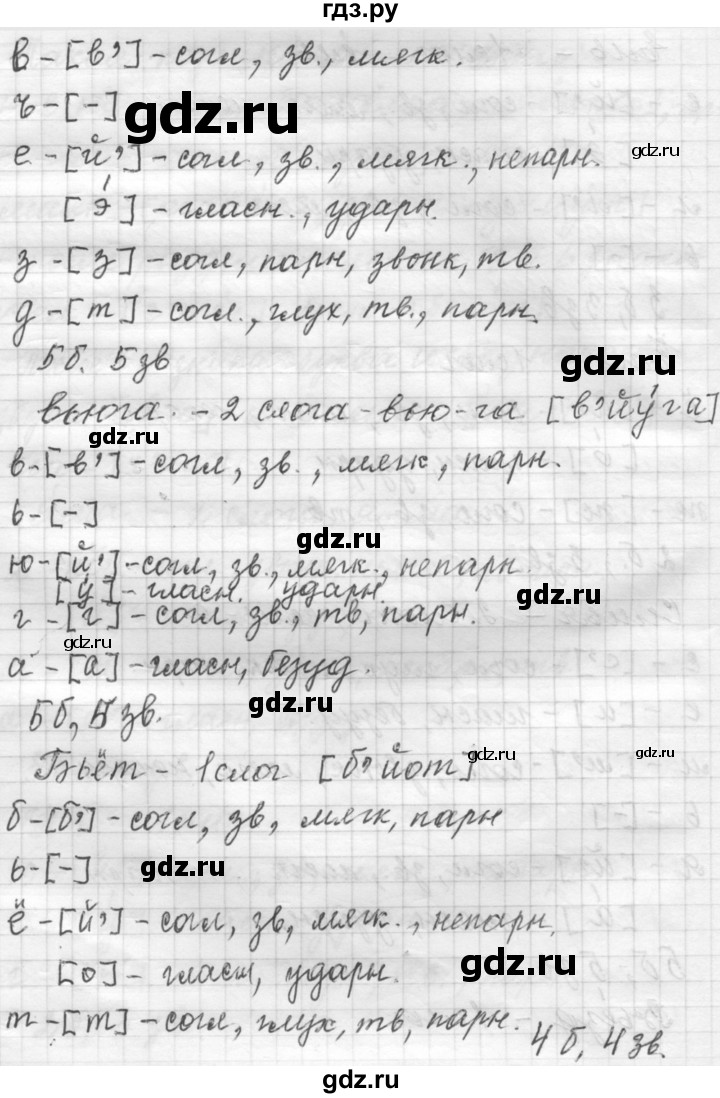 гдз.ру
в - [в’] - согл, зв., мягк.
ъ - [-]
gdz.ru
е - [й’] - согл, зв., мягк., непарн.
gdz.ru
[э́] - гласн., ударн.
з - [з] - согл, парн, звонк, тв.
д - [т] - согл., глух, тв., парн.
5 б. 5 зв
gdz.ru
вьюга. - 2 слога - вью-га [в’йу́га]
gdz.ru
в - [в’] - согл, зв., мягк, парн.
ь - [-]
gdz.ru
ю - [й’] - согл, зв., мягк., непарн.
[у́] - гласн. ударн.
gdz.ru
г - [г] - согл, зв., тв, парн.
gdz.ru
а - [а] - гласн, безуд.
gdz.ru
5 б, 5 зв.
Бьёт - 1 слог [б’йот]
gdz.ru
б - [б’] - согл, зв, мягк, парн
ь - [-]
gdz.ru
ё - [й’] - согл, зв, мягк., непарн.
[о] - гласн, ударн.
gdz.ru
т - [т] - согл, глух, тв, парн.
4 б, 4 зв.
gdz.ru